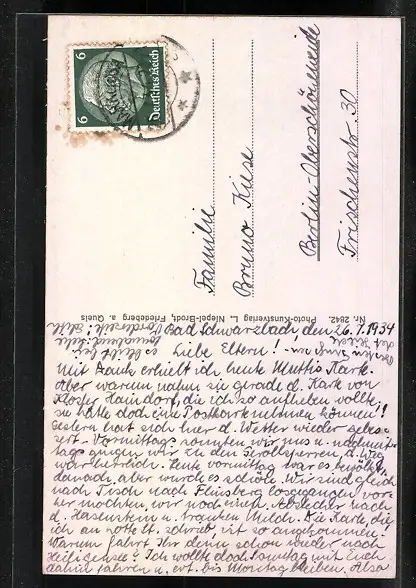 6 6
Deutsches Reich
Familie
Bruno Kiese
Berlin-Oberschöneweide
Frischenstr 30
Nr. 2842. Photo-Kunstverlag L. Niepel-Brodt, Friedeberg a. Queis
Bad Schwarzbach, den 26.7.1934
Liebe Eltern!
Mit Dank erhielt ich heute Muttis Karte.
Aber warum nahm sie gerade d. Karte von
Kloster Haindorf, die ich so aufheben wollte,
sie hätte doch eine Postkarte nehmen können!!
Gestern hat sich hier d. Wetter wieder gebes-
sert. Vormittags sonnten wir uns u. nachmit-
tags gingen wir zu den d. Weg
war herrlich. Heute vormittag war es bewölkt,
danach, aber wurde es schön. Wir sind gleich
nach Tisch nach Flinsberg losgegangen vor-
her machten wir noch einen Abstecher nach
d. Hasenstein u. tranken Milch. Die Karte, die
ich an schrieb, ist so angekommen.
Wann fahrt Ihr denn schon wieder nach
Heiligensee? Ich wollte doch Sonntag mit Euch
dahin fahren u. evt. bis Montag bleiben. Also